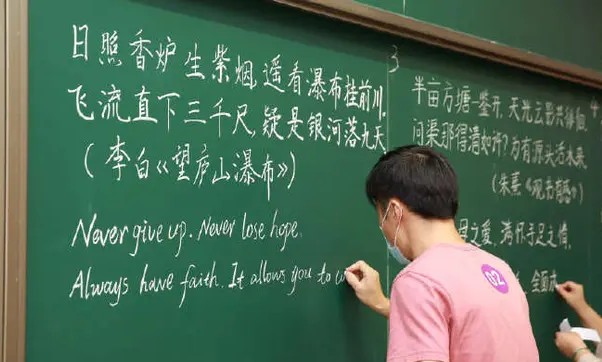 日照香炉生紫烟,遥看瀑布挂前川,
飞流直下三千尺,疑是银河落九天
(李白《望庐山瀑布》)
Never give up. Never lose hope.
Always have faith. It allows you to
3
半亩方塘一鉴开,天光云影共徘徊
问渠那得清如许?为有源头活水来
(朱熹《观书有感》)
母之爱,满怀手足之情,
全国
4
02